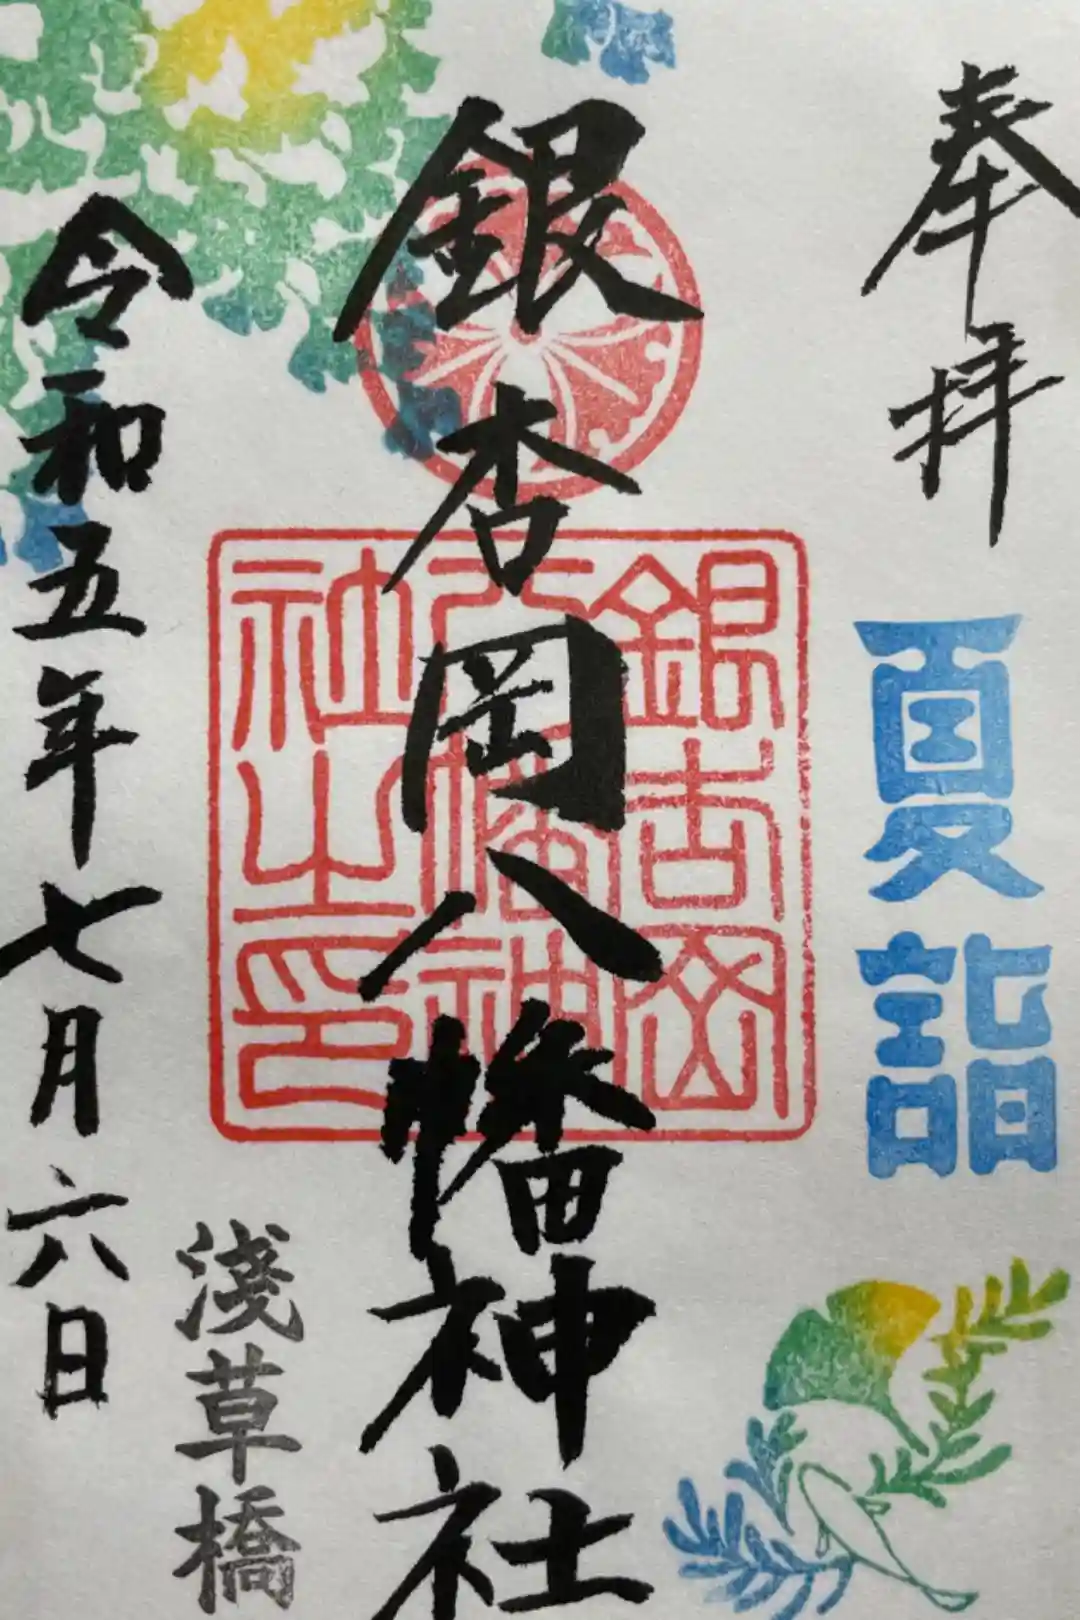 奉拝
夏詣
銀杏岡八幡神社
銀杏岡
八幡神
社之印
淺草橋
令和五年七月六日